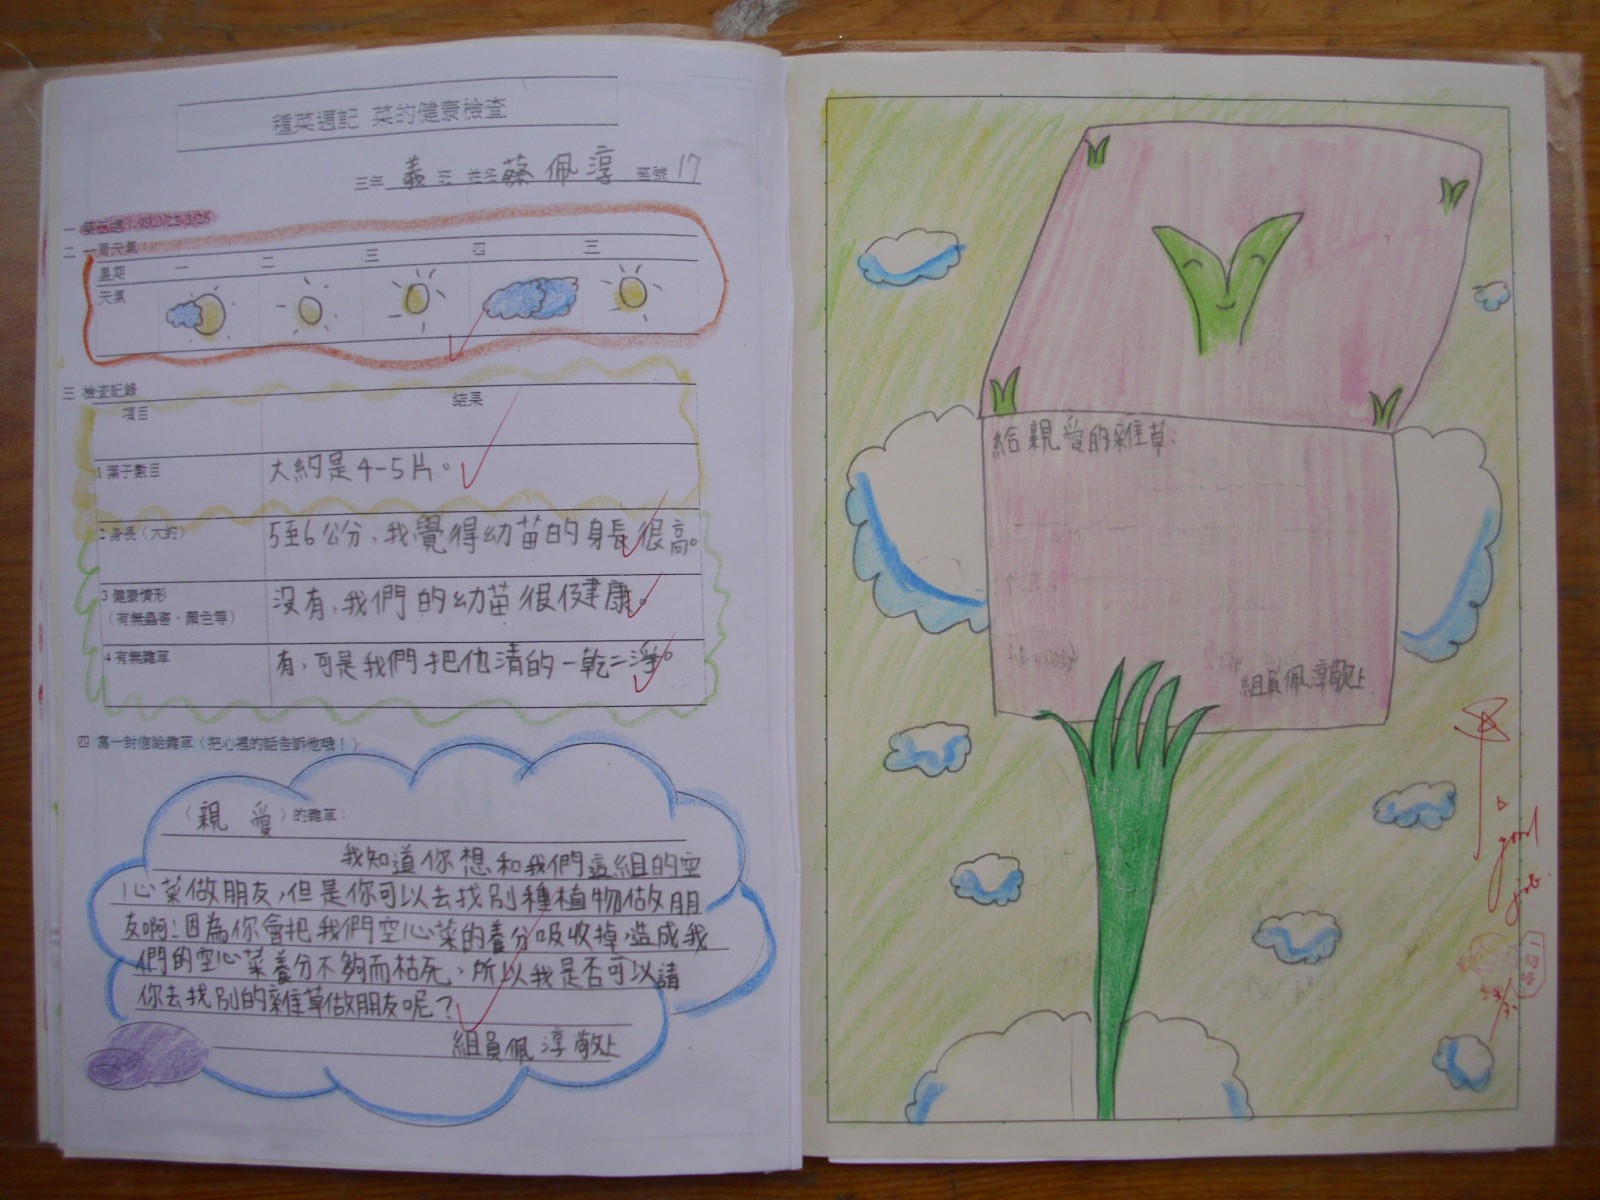 種菜週記 菜的健康檢查
三年 義 班 姓名 蔡佩淳 座號 17
二 一周天氣：
星期 一 二 三 四 三
天氣
三 檢查記錄
項目 結果
1 葉子數目 大約是4-5片。
2 身長（大約） 5至6公分，我覺得幼苗的身長很高。
3 健康情形
（有無蟲害、顏色等） 沒有，我們的幼苗很健康。
4 有無雜草 有，可是我們把他清的一乾二淨。
四 寫一封信給雜草（把心裡的話告訴他哦！）
（親 愛）的雜草：
我知道你想和我們這組的空
心菜做朋友，但是你可以去找別種植物做朋
友啊！因為你會把我們空心菜的養分吸收掉，造成我
們的空心菜養分不夠而枯死，所以我是否可以請
你去找別的雜草做朋友呢？
組員佩淳敬上
給親愛的雜草：
組員佩淳敬上
good
job.